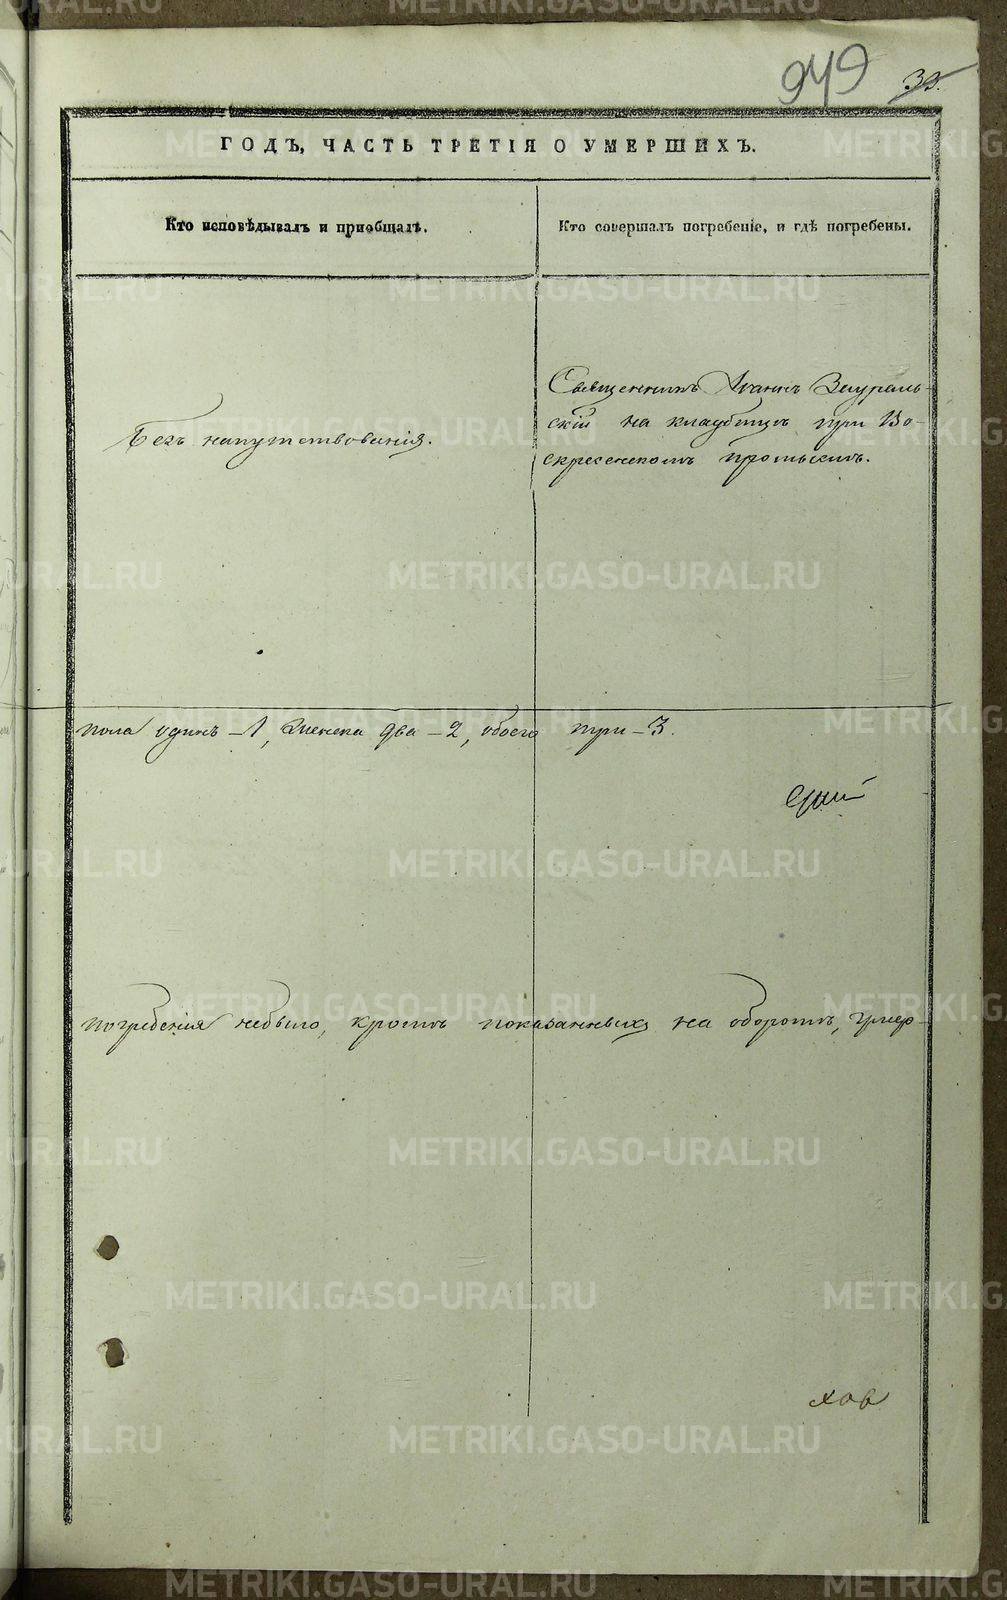 949 35.
ГОДЪ, ЧАСТЬ ТРЕТІЯ О УМЕРШИХЪ.
Кто исповѣдывалъ и пріобщалъ.
Кто совершалъ погребеніе, и гдѣ погребены.
Безъ напутствованія.
Священникъ Іоаннъ Заураль-
скій на кладбищѣ при Во-
скресенскомъ промыслѣ.
пола одинъ - 1, женска два - 2, обоего три - 3.
погребенія небыло, кромѣ показанныхъ на оборотѣ, умер-
хов
METRIKI.GASO-URAL.RU